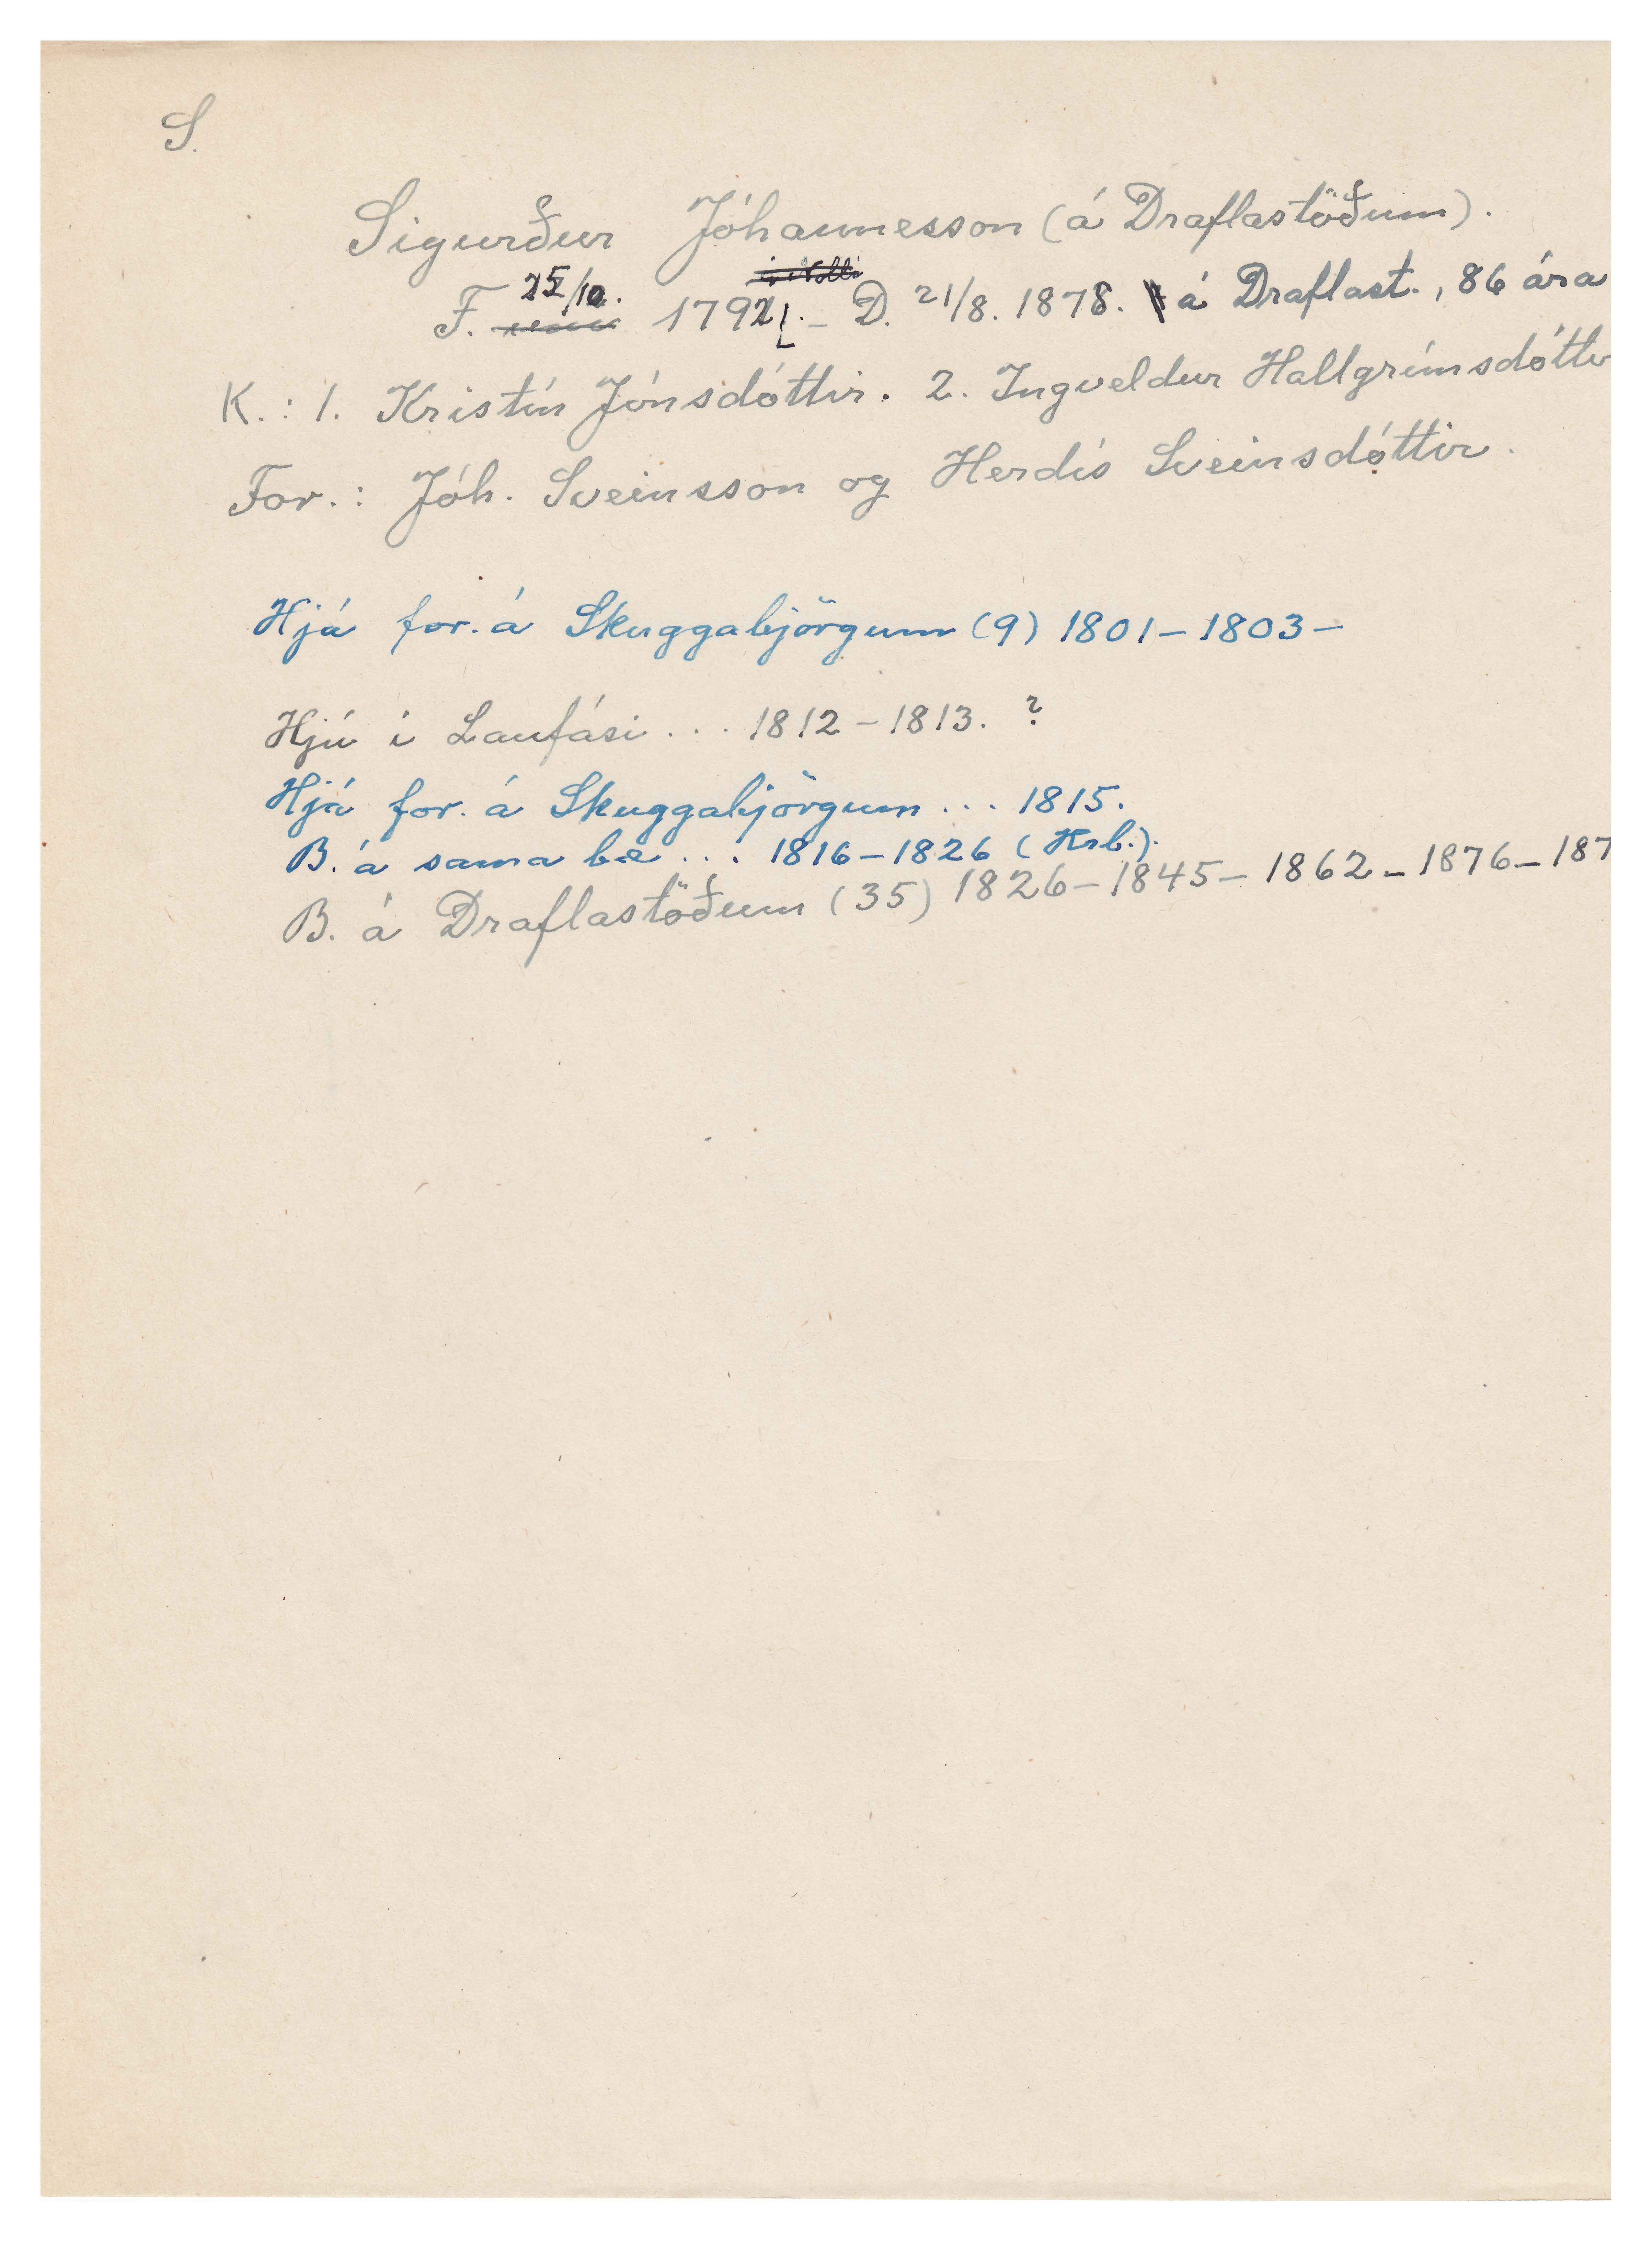 S.
Sigurður Jóhannesson (á Draflastöðum).
F. 25/10. 1792. – D. 21/8. 1878. á Draflast., 86 ára
K.: 1. Kristín Jónsdóttir. 2. Ingveldur Hallgrímsdóttir
For.: Jóh. Sveinsson og Herdís Sveinsdóttir.
Hjá for. á Skuggabjörgum (9) 1801 – 1803 –
Hjú í Laufási ... 1812 – 1813. ?
Hjá for. á Skuggabjörgum ... 1815.
B. á sama bæ ... 1816 – 1826 (Krb.).
B. á Draflastöðum (35) 1826 – 1845 – 1862 – 1876 – 187